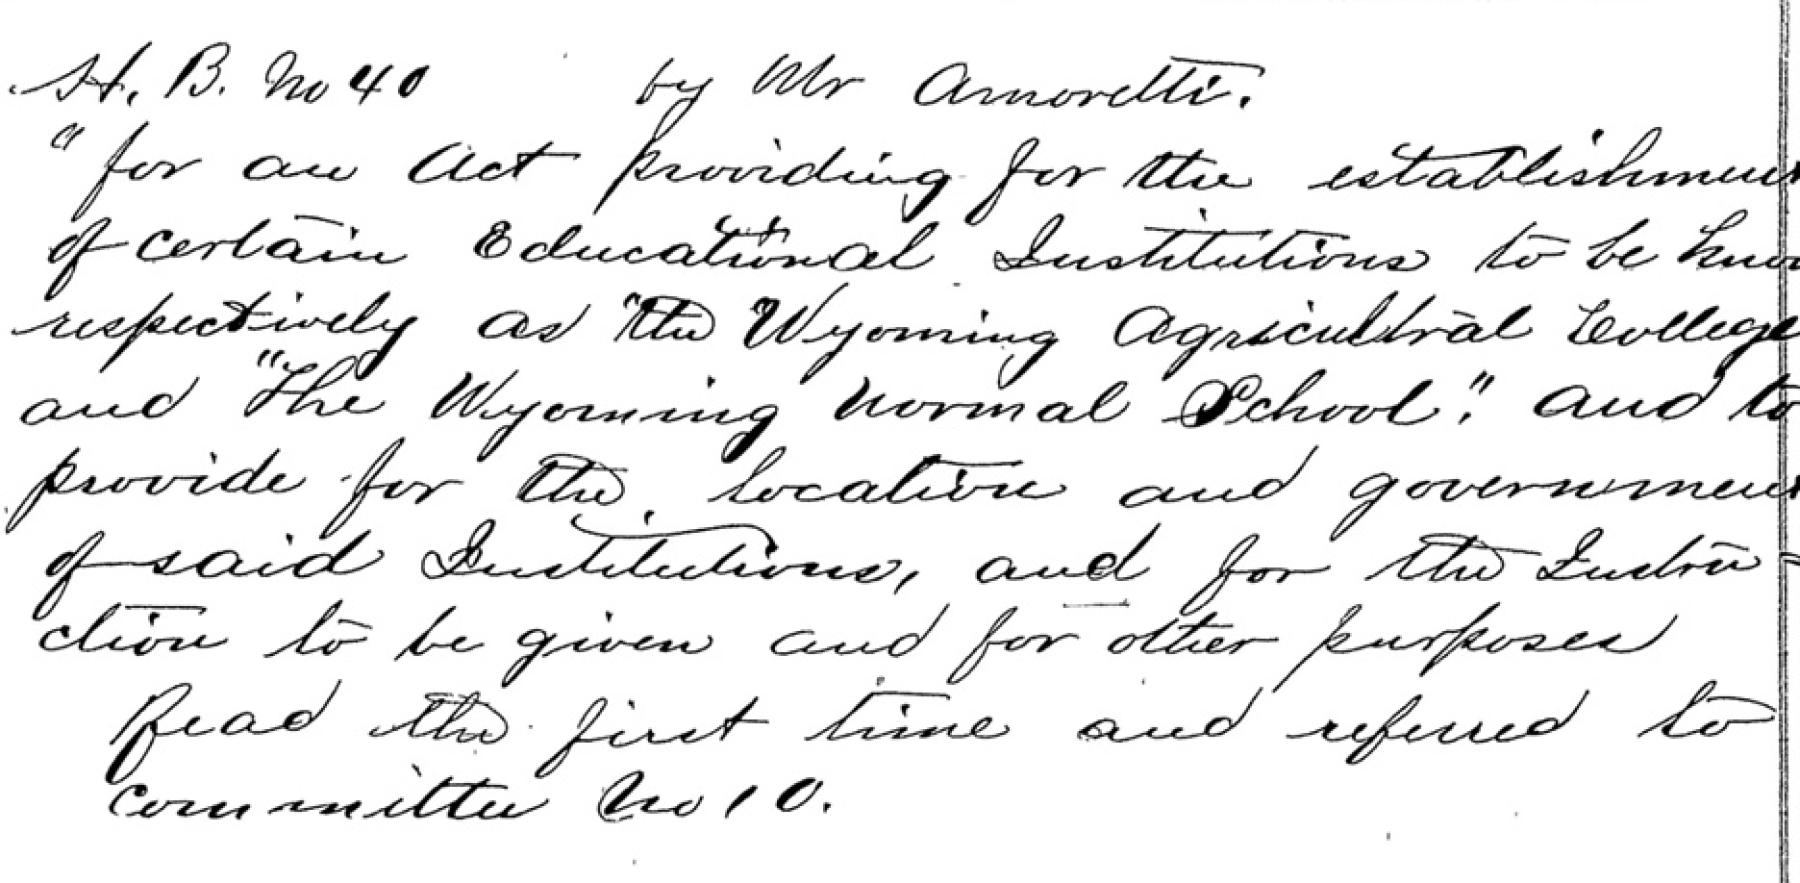 H. B. No 40 by Mr Amoretti.
"for an Act providing for the establishment
of certain Educational Institutions to be know
respectively as "the Wyoming Agricultural College
and "The Wyoming Normal School". and to
provide for the location and government
of said Institutions, and for the Instru=
ction to be given and for other purposes
Read the first time and referred to
committee No 10.